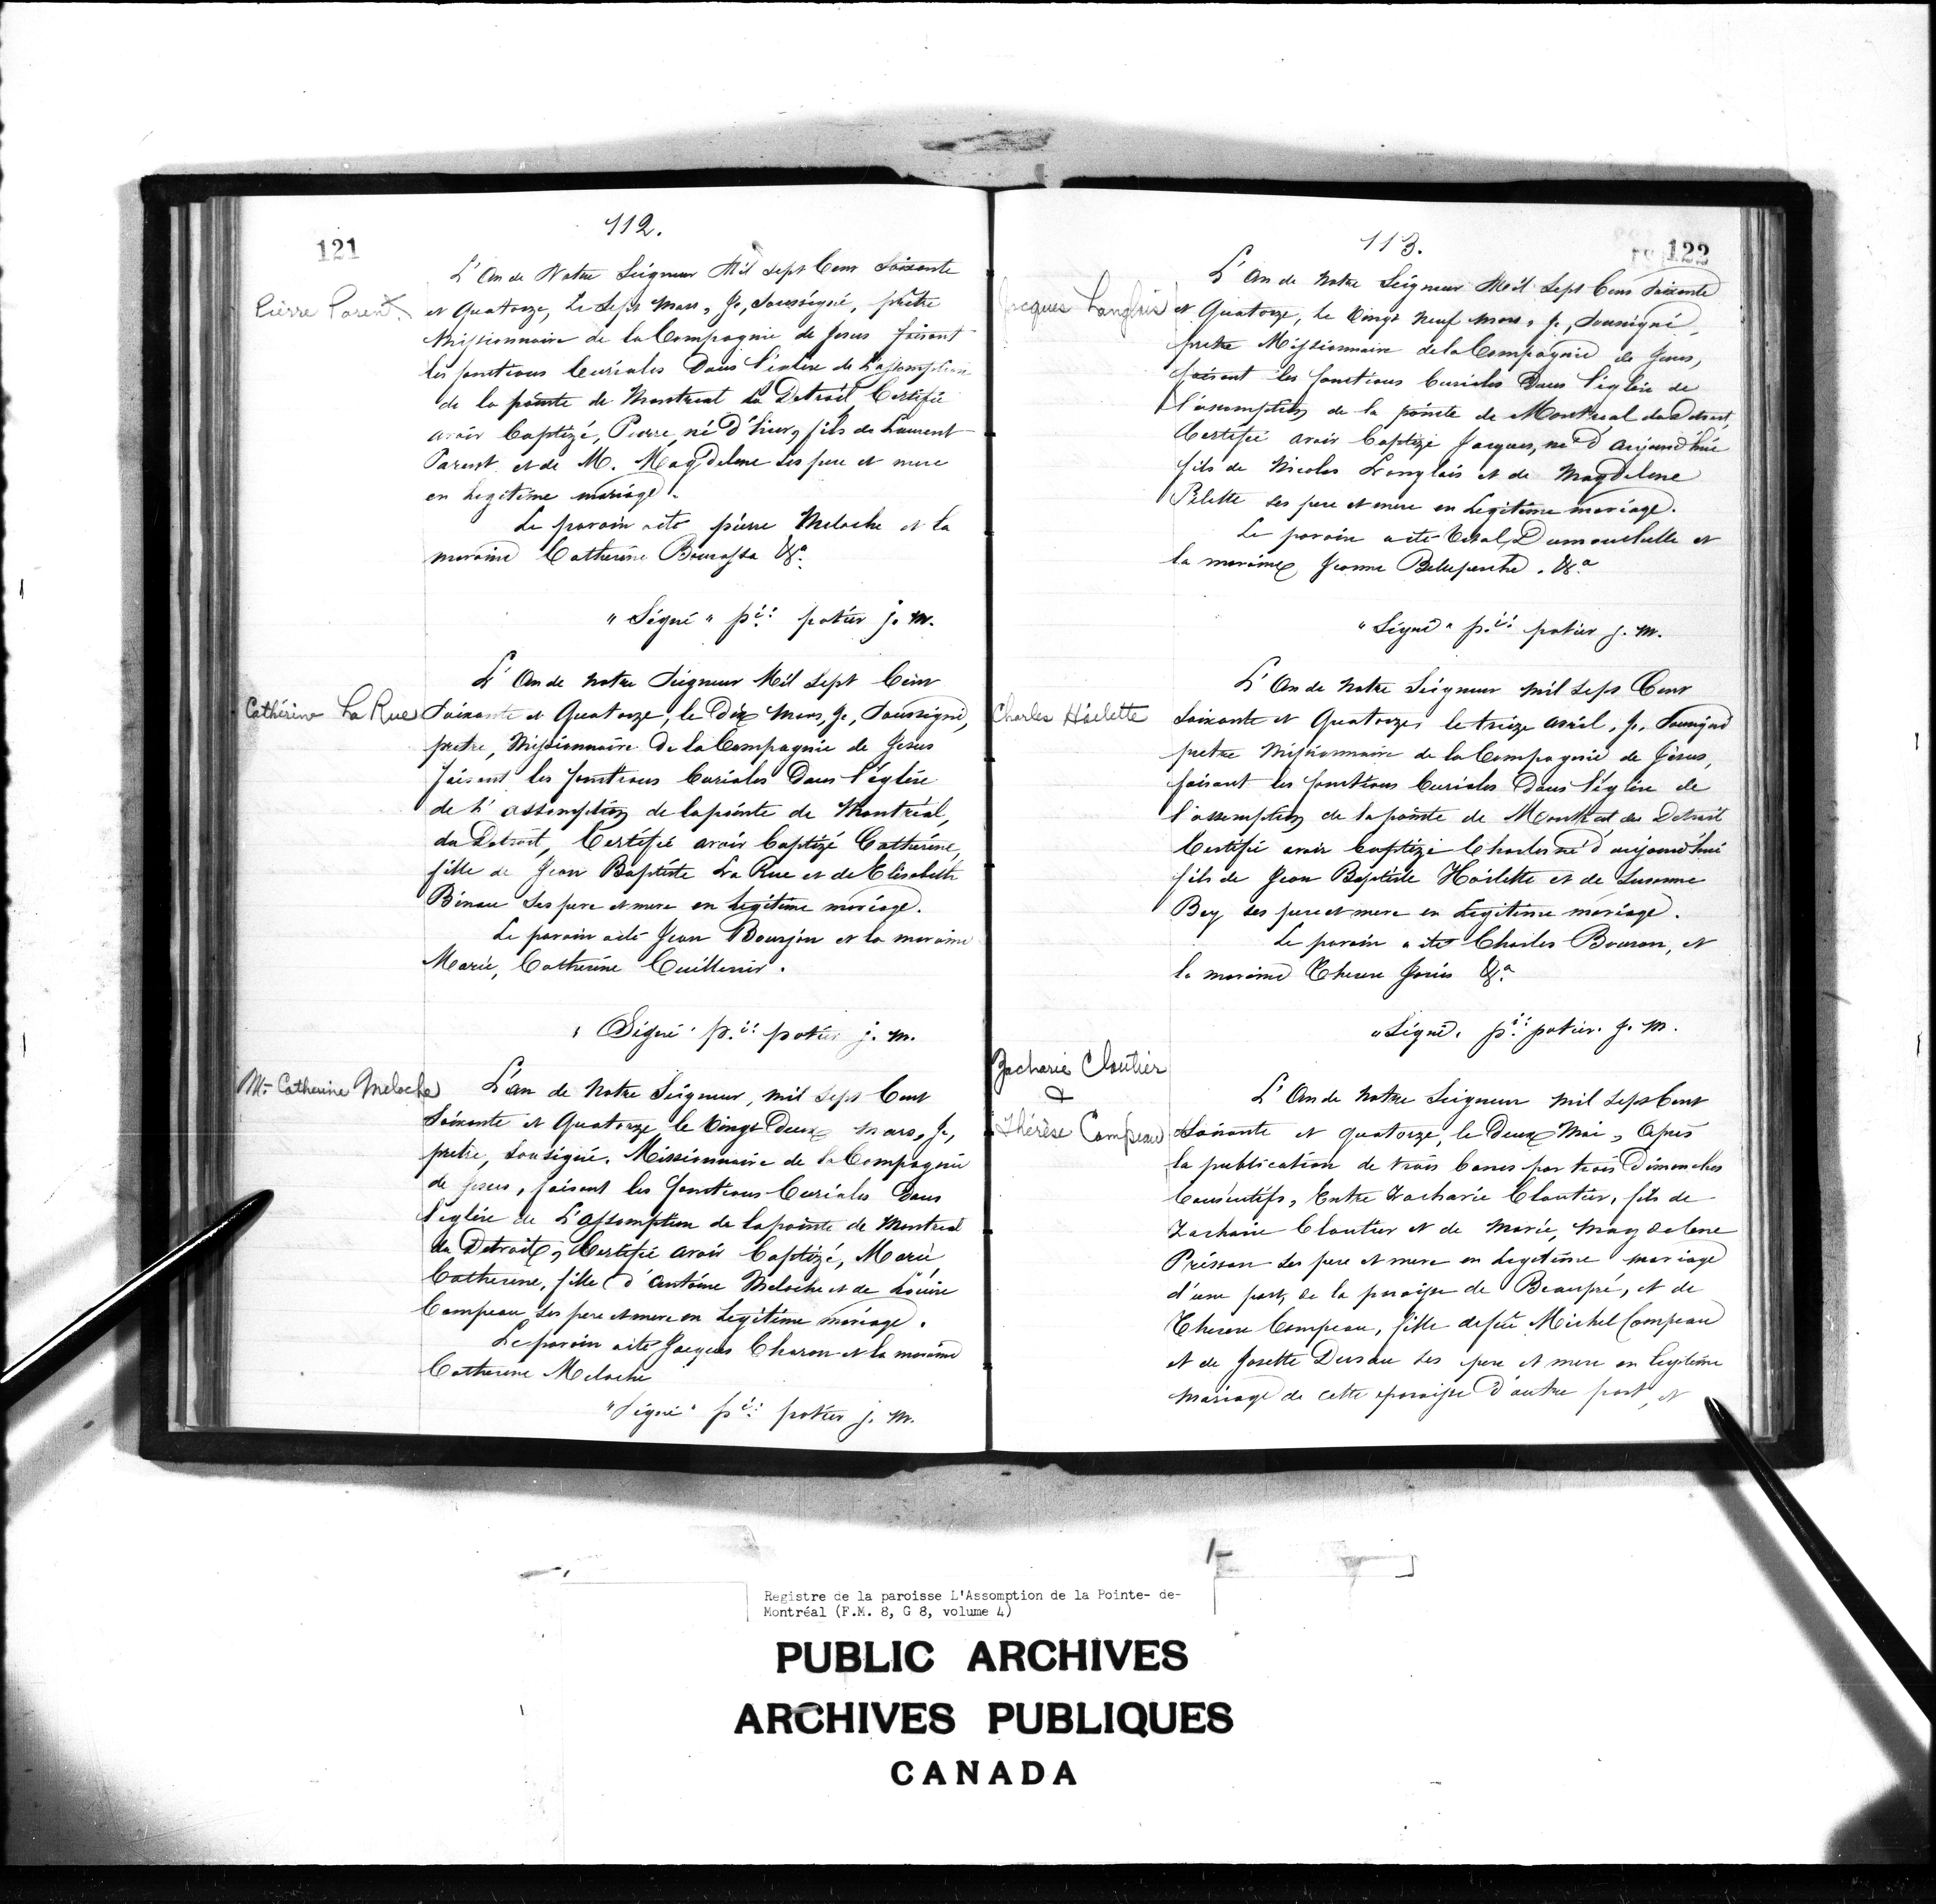 112.
121
Pierre Parent
L'An de Notre Seigneur Mil sept Cent Soixante
et Quatorze, Le Sept Mars, Je, Soussigné, prêtre
Missionnaire de la Compagnie de Jesus faisant
les fonctions Curiales Dans l'eglise de L'assomption
de la pointe de Montreal du Detroit Certifie
avoir Baptizé, Pierre, né D'hier, fils de Laurent
Parent et de M. Magdelene ses pere et mere
en Legitime mariage.
Le parain a ete pierre Meloche et la
maraine Catherine Bourassa &a.
"Signé" pre: potier j. m.
Catherine La Rue
L'An de Notre Seigneur Mil Sept Cent
Soixante et Quatorze, le Dix Mars, Je, Soussigné,
pretre, Missionnaire De la Compagnie de Jesus
faisant les fonctions Curiales Dans l'église
de L'assomption de la pointe de Montréal,
du Detroit, Certifie avoir Baptizé Catherine,
fille de Jean Baptiste La Rue et de Elisabeth
Binau Ses pere et mere en Legitime mariage.
Le parain a eté Jean Bourjon et la maraine
Marie, Catherine Cuillerier.
"Signé" pre: potier j. m.
Me Catherine Meloche
L'an de Notre Seigneur, mil Sept Cent
Soixante et Quatorze, le Vingt Deux Mars, Je,
pretre, Sousigné, Missionnaire de la Compagnie
de Jesus, faisant les fonctions Curiales Dans
l'eglise de L'assomption de la pointe de Montreal
du Detroit, Certifie avoir Baptizé, Marie
Catherine, fille d'Antoine Meloche et de Louise
Campeau, Ses pere et mere en Legitime mariage.
Le parain a eté Jacques Charon et la maraine
Catherine Meloche
"Signé" pre: potier j. m.
113.
122
Jacques Langlois
L'An de Notre Seigneur Mil Sept Cent Soixante
et Quatorze, le Vingt Neuf Mars, Je, Sousigné,
pretre Missionnaire de la Compagnie de Jesus,
faisant les fonctions Curiales Dans l'église de
l'assomption de la pointe de Montreal du Detroit,
Certifie avoir Baptizé Jacques, né d'aujourd'hui
fils de Nicolas Langlois et de Magdelene
Pilette ses pere et mere en Legitime mariage.
Le parain a eté Vital Dumouchelle et
la maraine Jeanne Belleperche. &a
"Signé" pre: potier j. m.
Charles Hóelette
L'An de Notre Seigneur Mil Sept Cent
Soixante et Quatorze, le treize avril, Je, Sousigné
pretre Missionnaire de la Compagnie de Jésus,
faisant les fonctions Curiales Dans l'église de
l'assomption de la pointe de Montreal du Detroit
Certifie avoir Baptizé Charles né d'aujourd'hui
fils de Jean Baptiste Hóelette et de Susanne
Bey ses pere et mere en Legitime mariage.
Le parain a eté Charles Bouron, et
la maraine Therese &a.
"Signé. pre: potier. j. m.
Zacharie Cloutier
&
Thérèse Campeau
L'An de Notre Seigneur Mil Sept Cent
Soixante et quatorze, le Deux Mai, Après
la publication de trois bans par trois Dimanches
Consécutifs, Entre Zacharie Cloutier, fils de
Zacharie Cloutier et de Marie, Magdelene
Prisson Ses pere et mere en Legitime mariage
d'une part, de la paroisse de Beaupré, et de
Therese Campeau, fille defeu Michel Campeau
et de Josette Dusau Ses pere et mere en legitime
Mariage de cette paroisse d'autre part, et
Registre de la paroisse L'Assomption de la Pointe- de-
Montréal (F.M. 8, G 8, volume 4)
PUBLIC ARCHIVES
ARCHIVES PUBLIQUES
CANADA